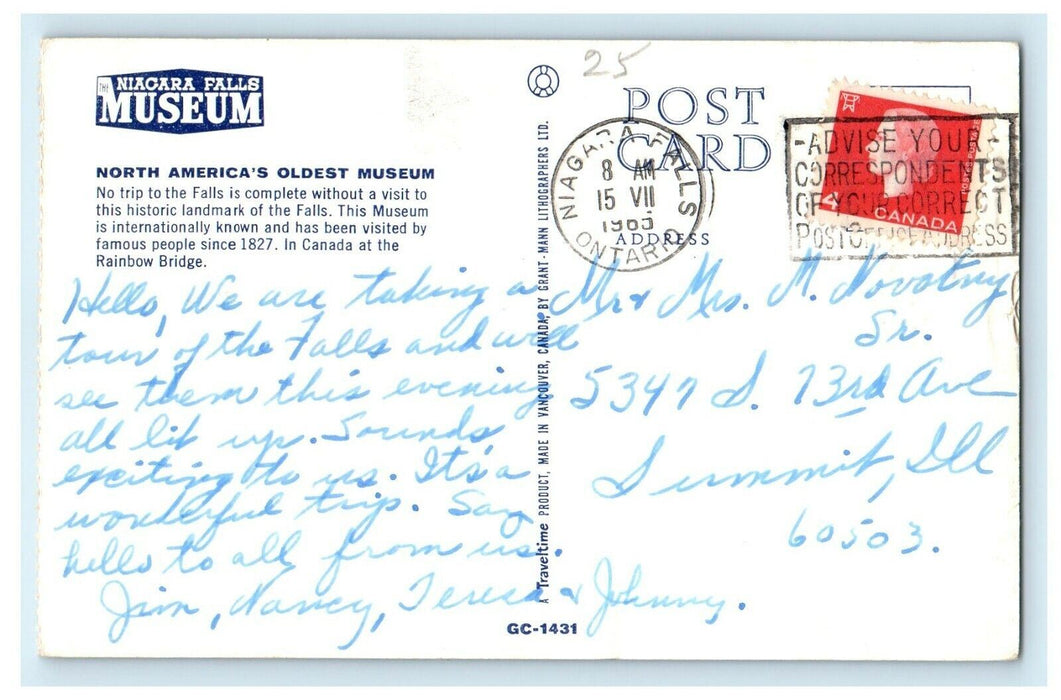 THE NIAGARA FALLS
MUSEUM
NORTH AMERICA'S OLDEST MUSEUM
No trip to the Falls is complete without a visit to
this historic landmark of the Falls. This Museum
is internationally known and has been visited by
famous people since 1827. In Canada at the
Rainbow Bridge.
Hello, We are taking a
tour of the Falls and will
see them this evening
all lit up. Sounds
exciting to us. It's a
wonderful trip. Say
hello to all from us.
Jim, Nancy, Teresa & Johnny.
A Traveltime PRODUCT, MADE IN VANCOUVER, CANADA, BY GRANT-MANN LITHOGRAPHERS LTD.
GC-1431
25
POST
CARD
ADDRESS
NIAGARA FALLS
8 AM
15 VII
1965
ONTARIO
4
CANADA
-ADVISE YOUR-
CORRESPONDENTS
OF YOUR CORRECT
POSTOFFICE ADDRESS
Mr & Mrs. M. Novotny
Sr.
5347 S. 73rd Ave
Summit, Ill
60503.